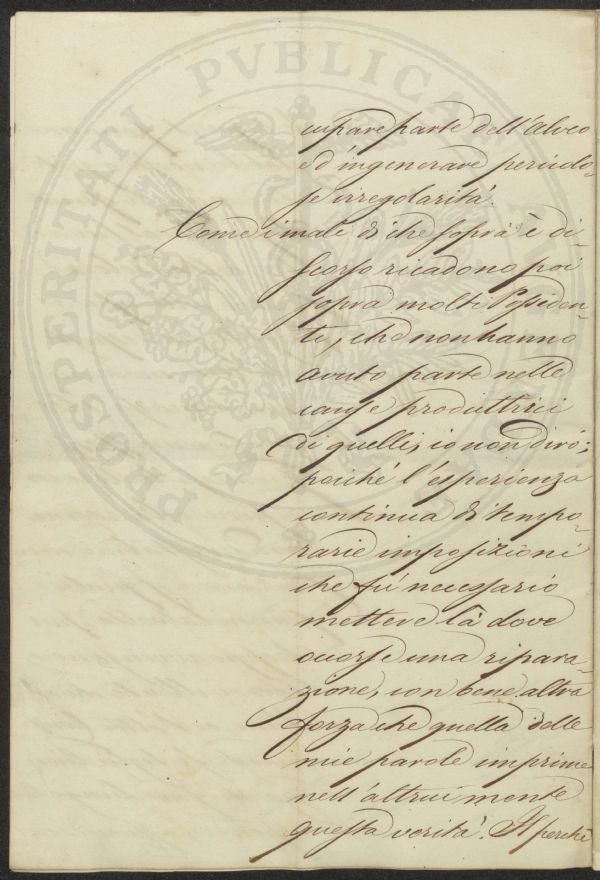 cupare parte dell'alveo
ed ingenerare pericolo-
se irregolarità.
Come i mali di che sopra è di-
scorso ricadono poi
sopra molti Possiden-
ti, che non hanno
avuto parte nelle
cause produttrici
di quelli, io non dirò;
poiché l'esperienza
continua di tempo-
rarie imposizioni
che fu necessario
mettere là dove
occorse una ripara-
zione, con bene altra
forza che quella delle
mie parole imprime
nell'altrui mente
questa verità. Il perchè
PROSPERITATI PVBLICAE